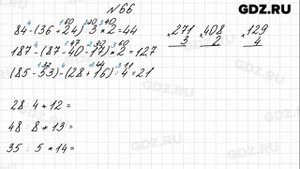 №66
GDZ.RU
84-(36+24):3*2=44
187-(87-40-17)*2=127
(85-53)-(28+16):4=21
28:4*12=
48:8*13=
35:5*14=
×271
3
×408
2
×129
4
GDZ.RU